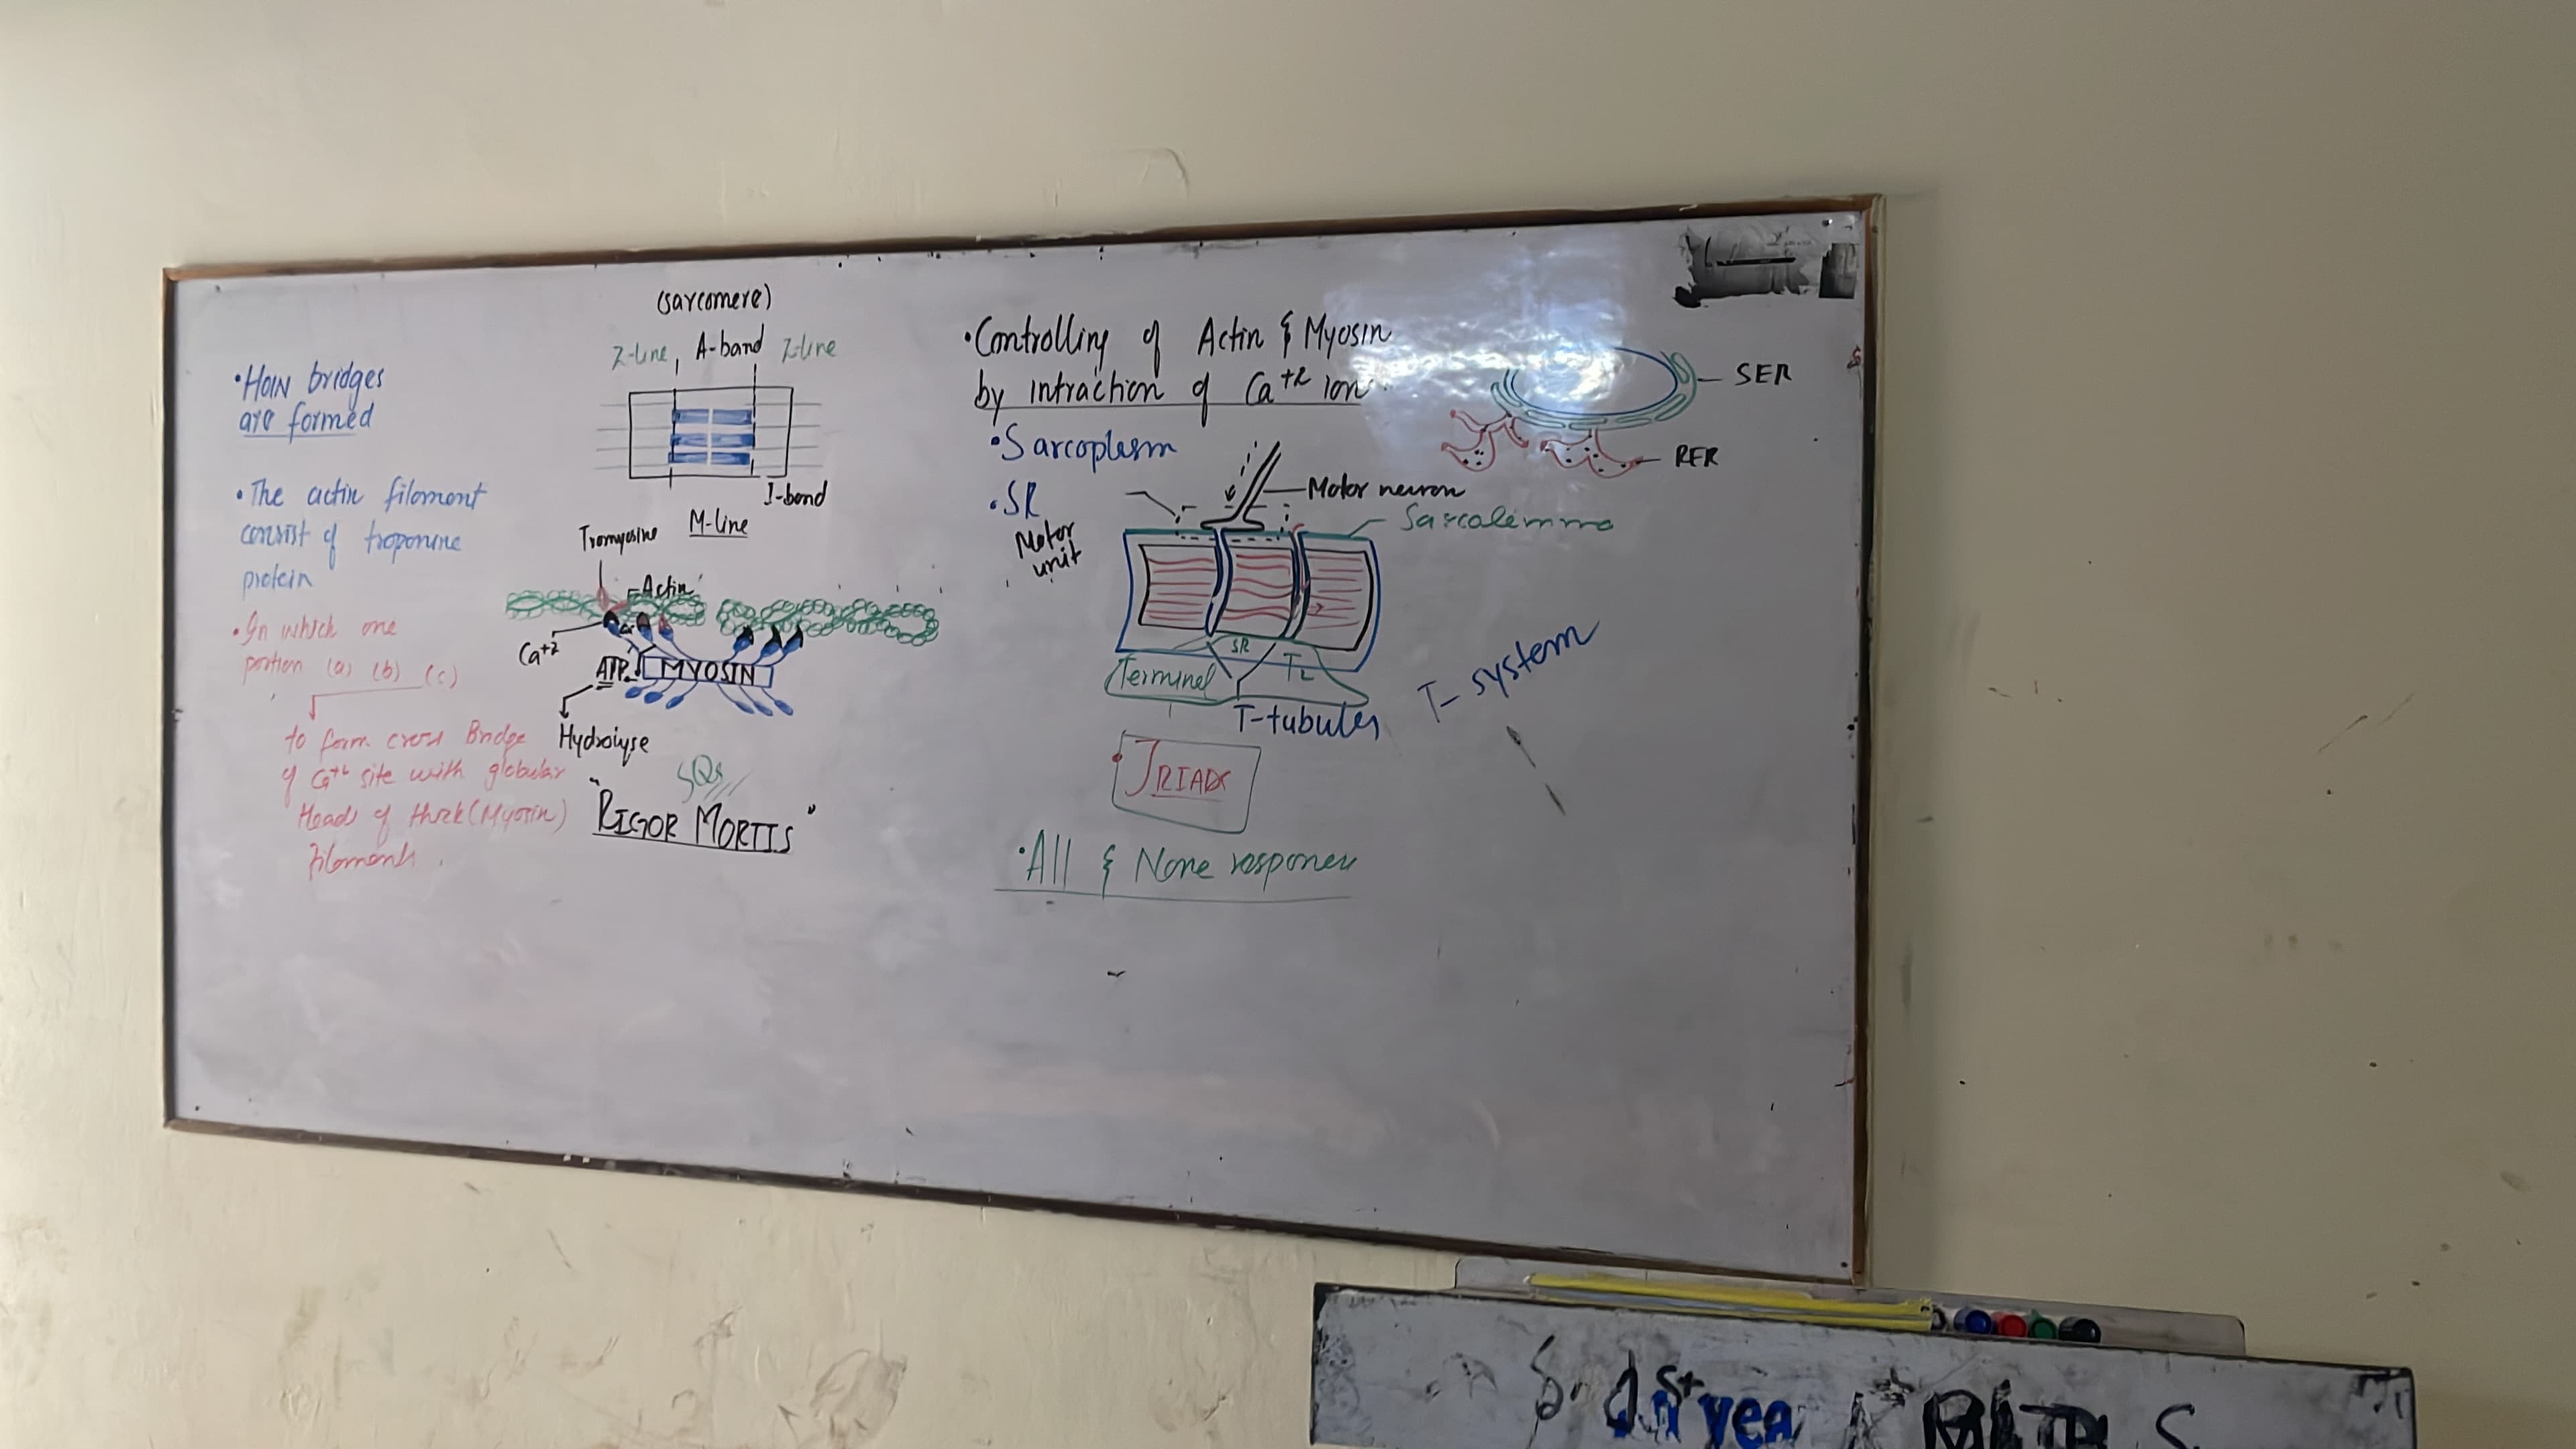 (sarcomere)
Z-line A-band Z-line
I-band
M-line
•How bridges
are formed
•The actin filament
consist of troponine
protein
•In which one
portion (a) (b) (c)
to form cross Bridge
of Ca+2 site with globular
Head of thick (Myosin)
filaments.
Tromyosine
Actin
Ca+2
ATP
MYOSIN
Hydrolyse
SQs
"RIGOR MORTIS"
•Controlling of Actin & Myosin
by intraction of Ca+2 ion.
•Sarcoplasm
•SR
Motor
unit
Motor neuron
Sarcolemma
SR
Terminal
T-tubules
T-system
•TRIADS
•All & None response
SER
RER